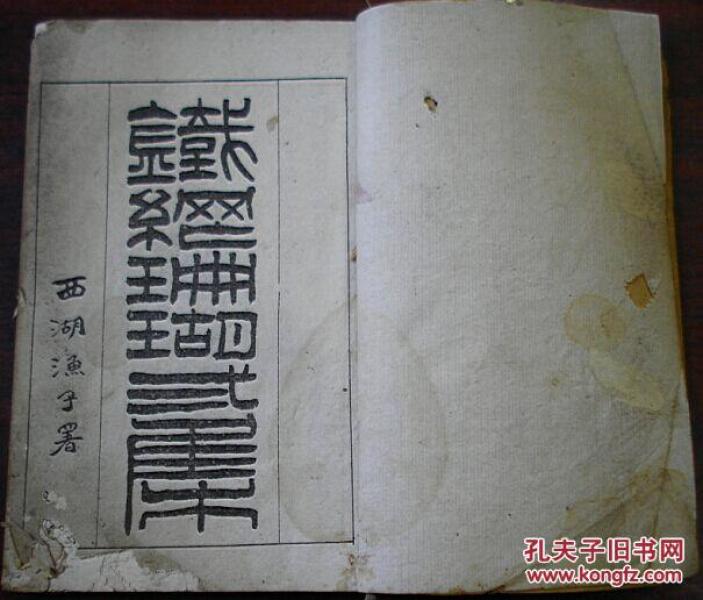 鐵網珊瑚弍集
西湖漁子署
孔夫子旧书网
www.kongfz.com